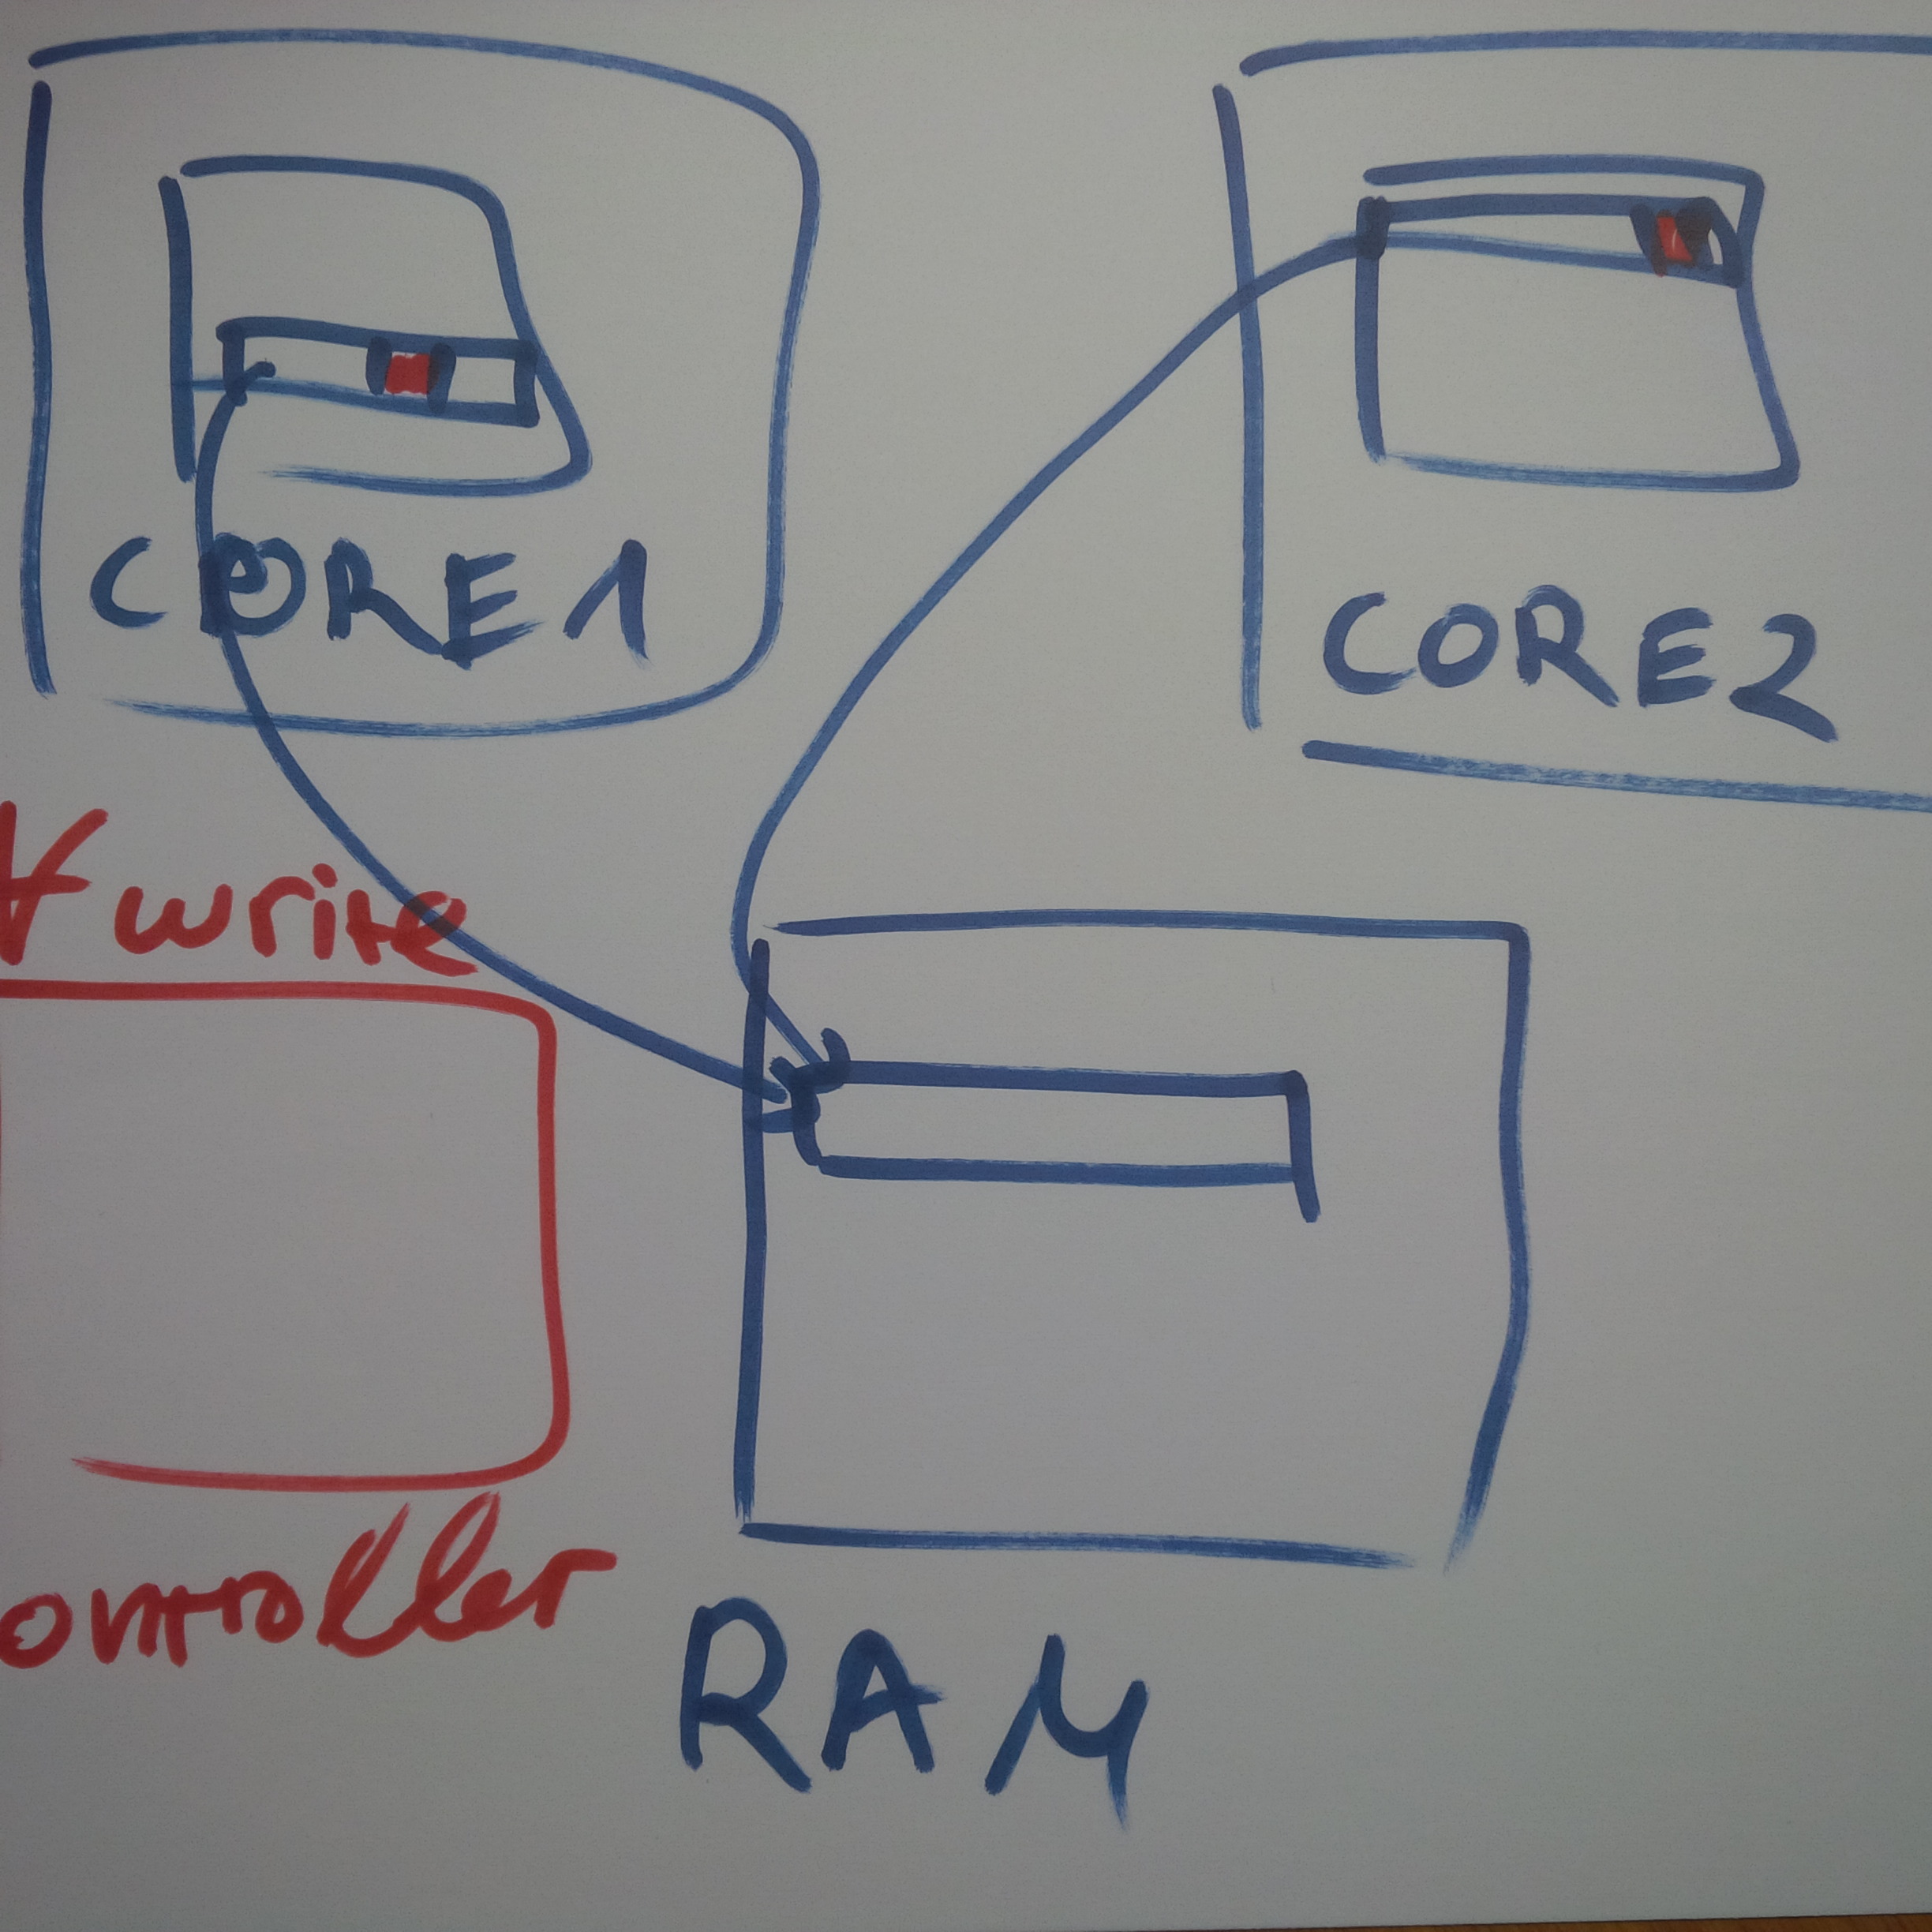 CORE1
CORE2
∀ write
ontroller
RAM